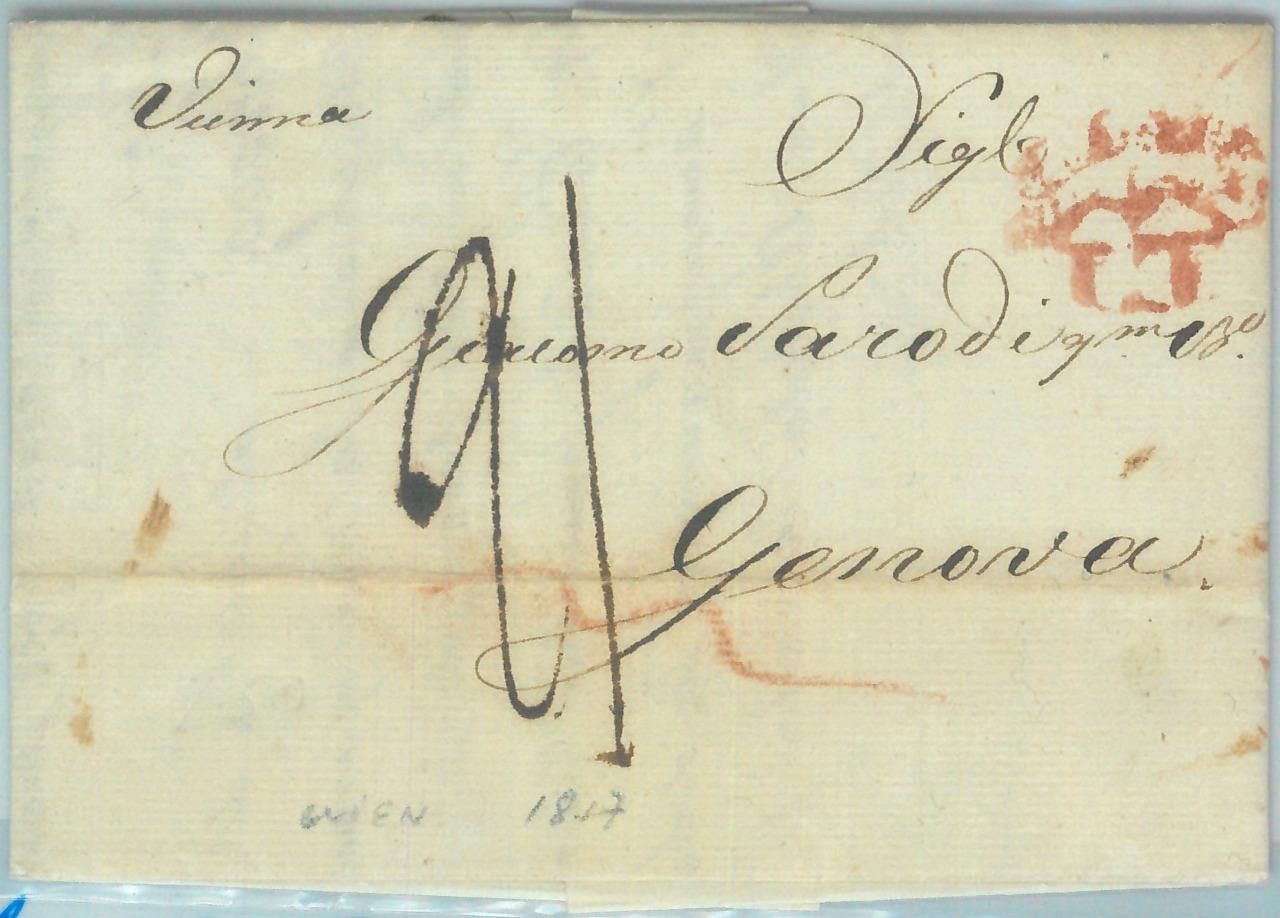 Vienna
Sig.r
Giacomo Parodi q.m Bo.
Genova.
WIEN 1817